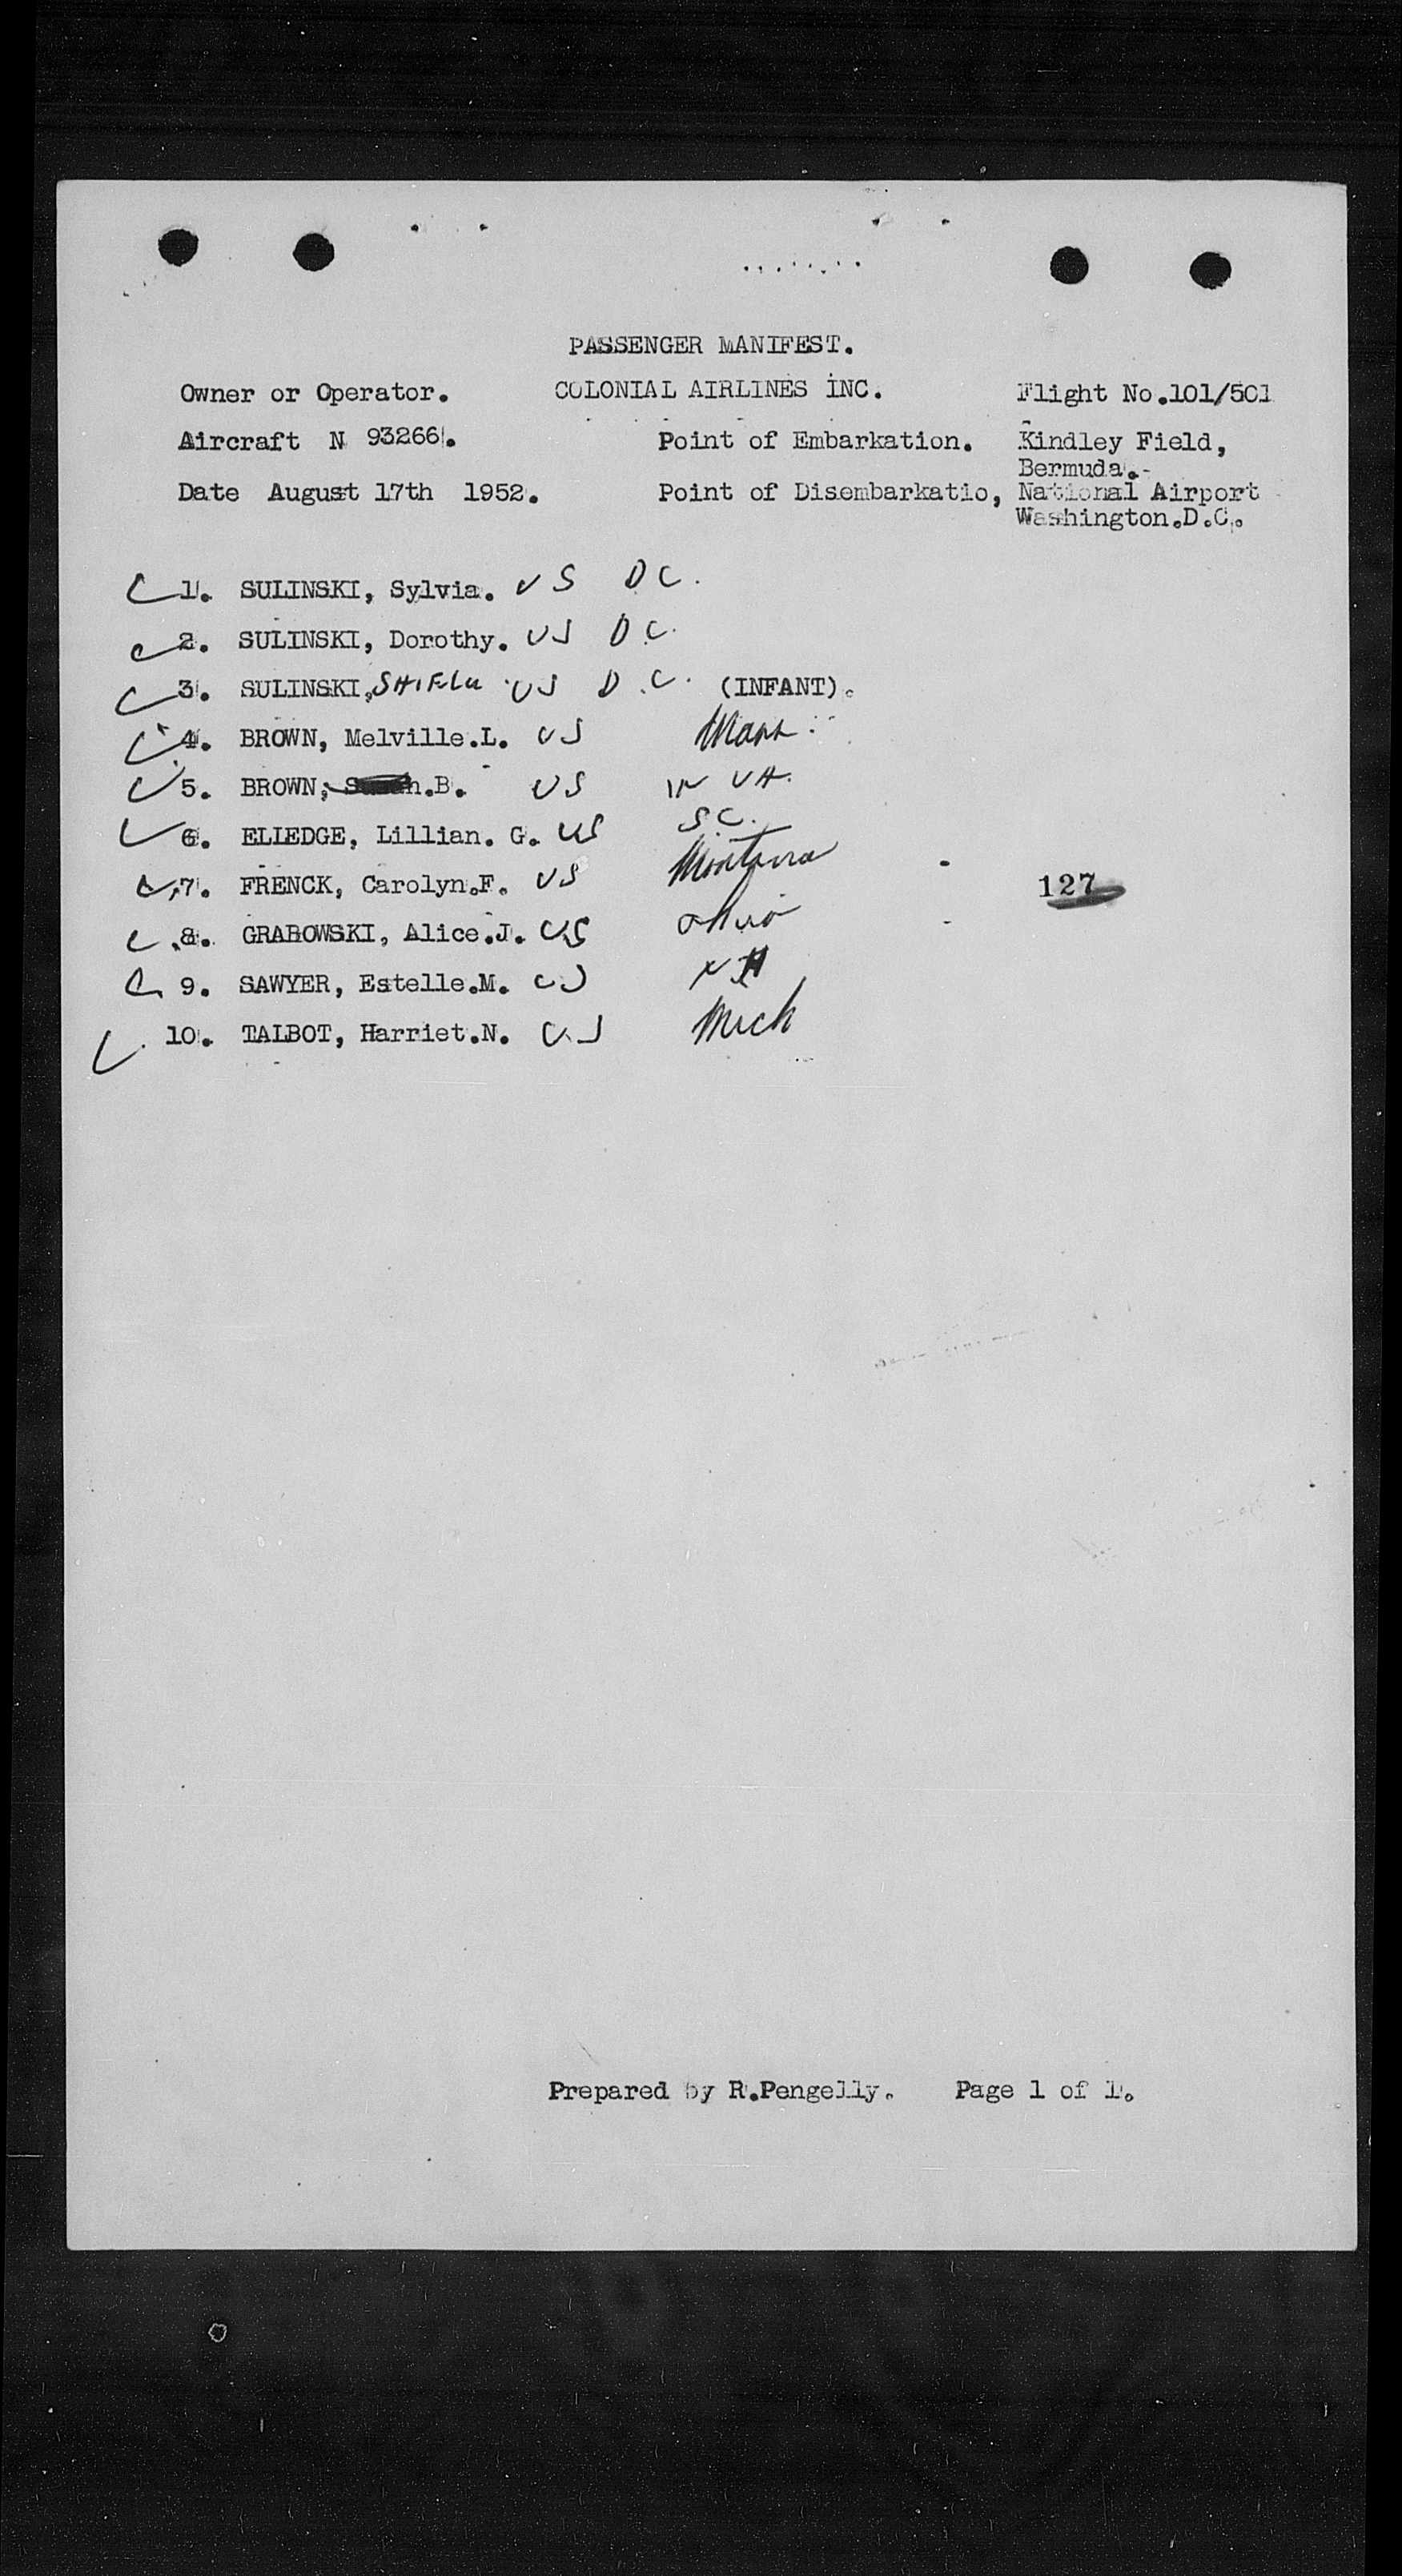 PASSENGER MANIFEST.
Owner or Operator. COLONIAL AIRLINES INC. Flight No.101/501
Aircraft N 93266. Point of Embarkation. Kindley Field,
Bermuda.-
Date August 17th 1952. Point of Disembarkatio, National Airport
Washington.D.C.
1. SULINSKI, Sylvia. US DC.
2. SULINSKI, Dorothy. US D.C.
3. SULINSKI, US D.C. (INFANT).
4. BROWN, Melville.L. US Mass.
5. BROWN, .B. US W VA.
6. ELIEDGE, Lillian. G. US S.C.
7. FRENCK, Carolyn.F. US Montana
127
8. GRABOWSKI, Alice.J. US Ohio
9. SAWYER, Estelle.M. US
10. TALBOT, Harriet.N. US Mich
Prepared by R.Pengelly. Page 1 of 1.